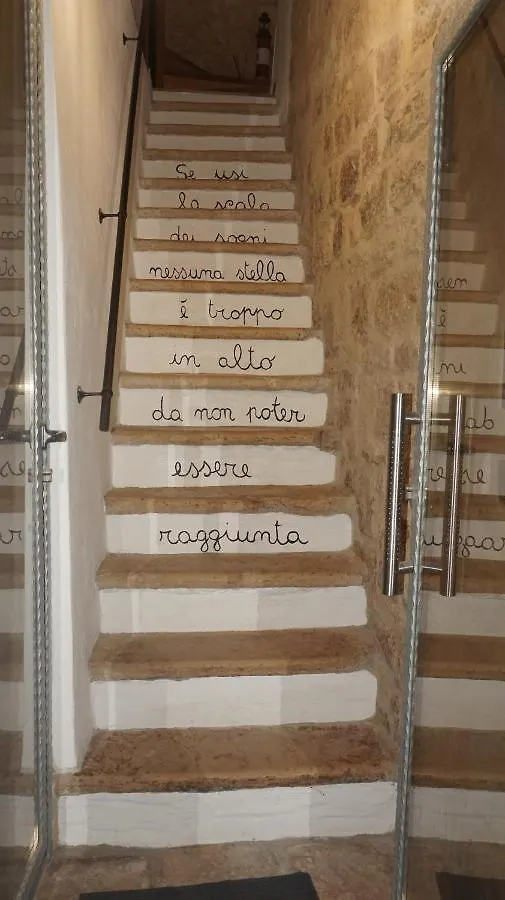 Se usi
la scala
dei sogni
nessuna stella
é troppo
in alto
da non poter
essere
raggiunta